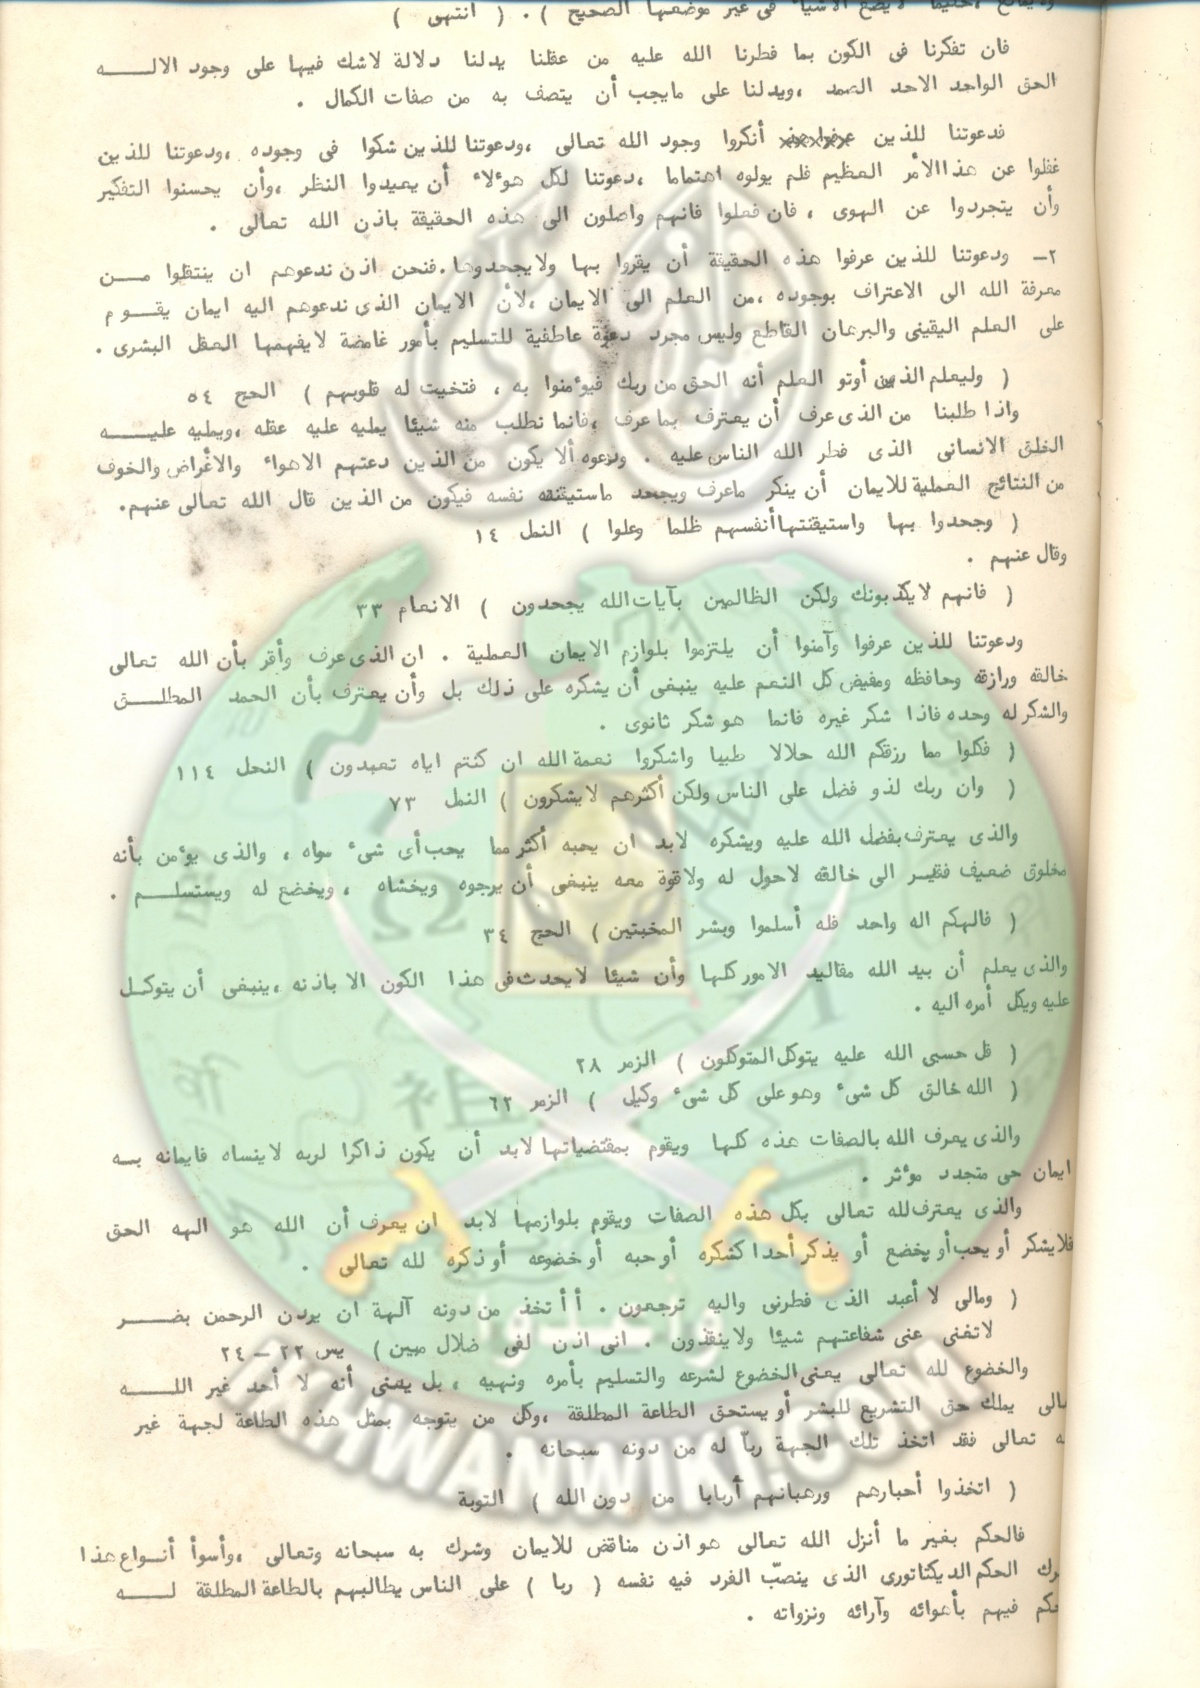 ولا يمانع ، حكيما لا يضع الأشياء فى غير موضعها الصحيح ) . ( انتهى )
فان تفكرنا فى الكون بما فطرنا الله عليه من عقلنا يدلنا دلالة لاشك فيها على وجود الالــــه
الحق الواحد الاحد الصمد ،ويدلنا على مايجب أن يتصف به من صفات الكمال .
فدعوتنا للذين أنكروا وجود الله تعالى ،ودعوتنا للذين شكوا فى وجوده ،ودعوتنا للذين
غفلوا عن هذا الأمر العظيم فلم يولوه اهتماما ،دعوتنا لكل هوءلاء أن يعيدوا النظر ،وأن يحسنوا التفكير
وأن يتجردوا عن الهوى ، فان فعلوا فانهم واصلون الى هذه الحقيقة باذن الله تعالى .
٢ــ ودعوتنا للذين عرفوا هذه الحقيقة أن يقروا بها ولايجحدوها.فنحن اذن ندعوهم ان ينتقلوا مــن
معرفة الله الى الاعتراف بوجوده ،من العلم الى الايمان ،لأن الايمان الذى ندعوهم اليه ايمان يقــوم
على العلم اليقينى والبرهان القاطع وليس مجرد دعوة عاطفية للتسليم بأمور غامضة لايفهمها العقل البشرى .
( وليعلم الذين أوتو العلم أنه الحق من ربك فيوءمنوا به ، فتخبت له قلوبهم ) الحج ٥٤
واذا طلبنا من الذى عرف أن يعترف بما عرف ،فانما نطلب منه شيئا يمليه عليه عقله ،ويمليه عليــــه
الخلق الانسانى الذى فطر الله الناس عليه . وندعوه ألا يكون من الذين دعتهم الاهواء والأغراض والخوف
من النتائج العملية للايمان أن ينكر ماعرف ويجحد ماستيقنته نفسه فيكون من الذين قال الله تعالى عنهم.
( وجحدوا بها واستيقنتها أنفسهم ظلما وعلوا ) النمل ١٤
وقال عنهم .
( فانهم لايكذبونك ولكن الظالمين بآيات الله يجحدون ) الانعام ٣٣
ودعوتنا للذين عرفوا وآمنوا أن يلتزموا بلوازم الايمان العملية . ان الذى عرف وأقر بأن الله تعالى
خالقه ورازقه وحافظه ومفيض كل النعم عليه ينبغى أن يشكره على ذلك بل وأن يعترف بأن الحمد المطلــق
والشكر له وحده فاذا شكر غيره فانما هو شكر ثانوى .
( فكلوا مما رزقكم الله حلالا طيبا واشكروا نعمة الله ان كنتم اياه تعبدون ) النحل ١١٤
( وان ربك لذو فضل على الناس ولكن أكثرهم لايشكرون ) النمل ٧٣
والذى يعترف بفضل الله عليه ويشكره لابد ان يحبه أكثر مما يحب أى شىء سواه ، والذى يوءمن بأنه
مخلوق ضعيف فقير الى خالقه لاحول له ولاقوة معه ينبغى أن يرجوه ويخشاه ، ويخضع له ويستسلـم .
( فالهكم اله واحد فله أسلموا وبشر المخبتين ) الحج ٣٤
والذى يعلم أن بيد الله مقاليد الامور كلها وأن شيئا لايحدث فى هذا الكون الا باذنه ،ينبغى أن يتوكـل
عليه ويكل أمره اليه .
( قل حسبى الله عليه يتوكل المتوكلون ) الزمر ٢٨
( الله خالق كل شىء وهو على كل شىء وكيل ) الزمر ٦٢
والذى يعرف الله بالصفات هذه كلها ويقوم بمقتضياتها لابد أن يكون ذاكرا لربه لاينساه فايمانه بــه
ايمان حى متجدد موءثر .
والذى يعترف لله تعالى بكل هذه الصفات ويقوم بلوازمها لابد ان يعرف أن الله هو الهه الحق
فلايشكر أو يحب أو يخضع أو يذكر أحدا كشكره أو حبه أو خضوعه أو ذكره لله تعالى .
( ومالى لا أعبد الذى فطرنى واليه ترجعون . أأتخذ من دونه آلهة ان يردن الرحمن بضــر
لاتغنى عنى شفاعتهم شيئا ولاينقذون . انى اذن لفى ضلال مبين ) يس ٢٢ ــ ٢٤
والخضوع لله تعالى يعنى الخضوع لشرعه والتسليم بأمره ونهيه ، بل يعنى أنه لا أحد غير اللــــه
عالى يملك حق التشريع للبشر أو يستحق الطاعة المطلقة ،وكل من يتوجه بمثل هذه الطاعة لجهة غير
ه تعالى فقد اتخذ تلك الجهة ربّا له من دونه سبحانه .
( اتخذوا أحبارهم ورهبانهم أربابا من دون الله ) التوبة
فالحكم بغير ما أنزل الله تعالى هو اذن مناقض للايمان وشرك به سبحانه وتعالى ،وأسوأ أنـواع هذا
رك الحكم الديكتاتورى الذى ينصّب الفرد فيه نفسه ( ربا ) على الناس يطالبهم بالطاعة المطلقة لــــه
حكم فيهم بأهوائه وآرائه ونزواته .
وأعدوا
IKHWANWIKI.COM